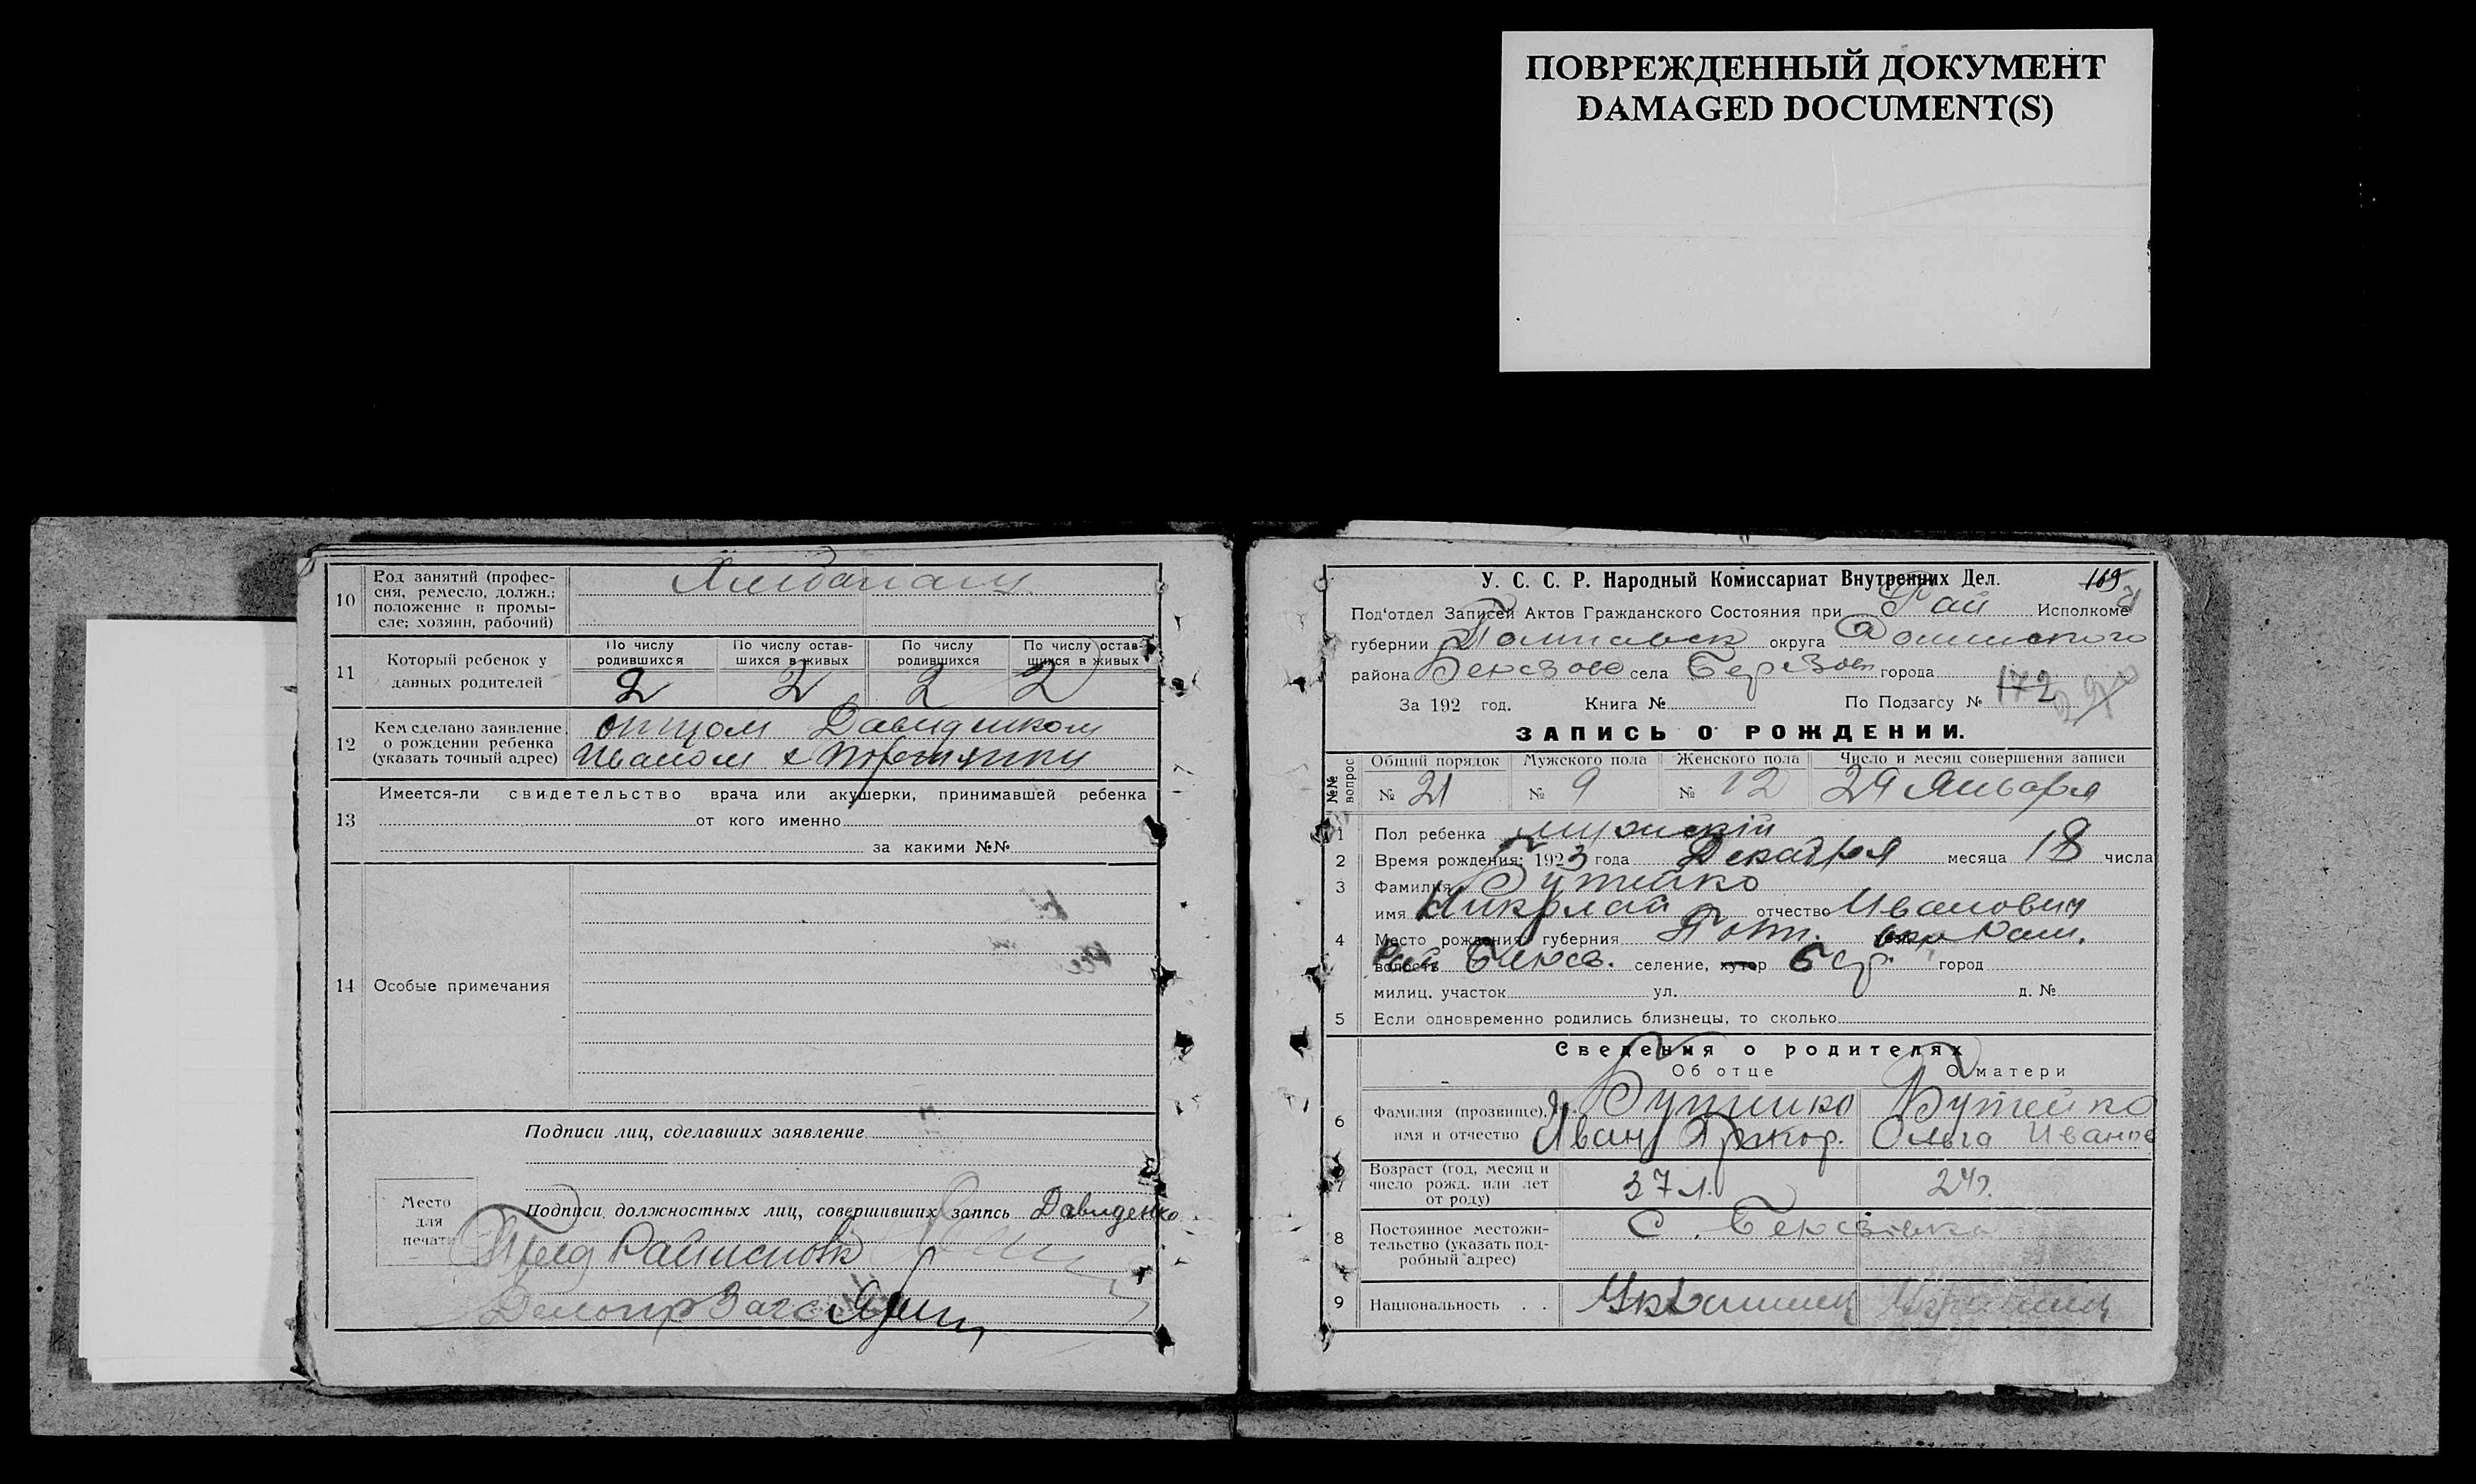 ПОВРЕЖДЕННЫЙ ДОКУМЕНТ
DAMAGED DOCUMENT(S)
10 Род занятий (профес-
сия, ремесло, должн.;
положение в промы-
сле; хозяин, рабочий)
11 Который ребенок у
данных родителей
По числу родившихся По числу остав-шихся в живых По числу родившихся По числу остав-шихся в живых
2 2 2 2
12 Кем сделано заявление
о рождении ребенка
(указать точный адрес)
отцом Давиденком
Иваном
13 Имеется-ли свидетельство врача или акушерки, принимавшей ребенка
от кого именно
за какими №№
14 Особые примечания
Подписи лиц, сделавших заявление
Место
для
печати
Подписи должностных лиц, совершивших запись Давиденко
Пред
Загс
У. С. С. Р. Народный Комиссариат Внутренних Дел. 169
Под'отдел Записей Актов Гражданского Состояния при Рай Исполкоме
губернии Полтавск округа
района села Березов города
За 192 год. Книга № По Подзагсу № 172
ЗАПИСЬ О РОЖДЕНИИ.
№№ вопрос
Общий порядок Мужского пола Женского пола Число и месяц совершения записи
№ 21 № 9 № 12 29 Января
1 Пол ребенка мужскій
2 Время рождения: 1923 года Декабря месяца 18 числа
3 Фамилия Бутейко
имя Николай отчество Иванович
4 Место рождения: губерния Полт.
волость селение, хутор Бер. город
милиц. участок ул. д. №
5 Если одновременно родились близнецы, то сколько
Сведения о родителях
Об отце О матери
6 Фамилия (прозвище),
имя и отчество
Бутейко Бутейко
Иван Ольга Иванов
7 Возраст (год, месяц и
число рожд. или лет
от роду)
37 л. 24 г.
8 Постоянное местожи-
тельство (указать под-
робный адрес)
С.
9 Национальность . . Украинец Украинец